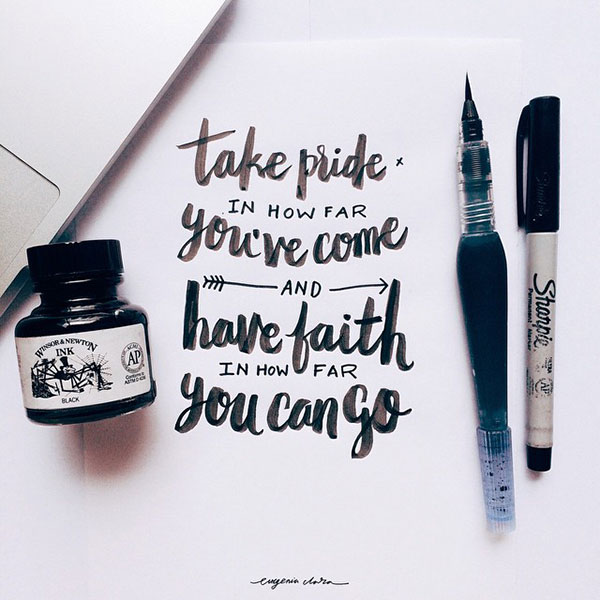 take pride
IN HOW FAR
you've come
AND
have faith
IN HOW FAR
you can go
WINSOR & NEWTON
INK
BLACK
ACMI
AP
Conforms to
ASTM D 4236
Sharpie
Permanent Marker
AP
eugenia clara